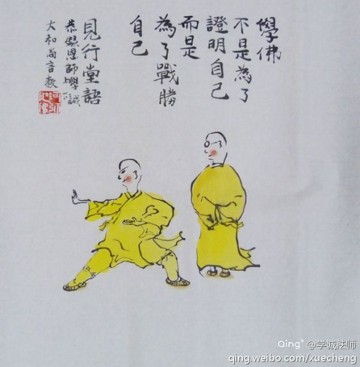 學佛
不是為了
證明自己
而是
為了戰勝
自己
見行堂語
恭錄恩師學誠
大和尚言教
Qing+ @学诚法师
qing.weibo.com/xuecheng